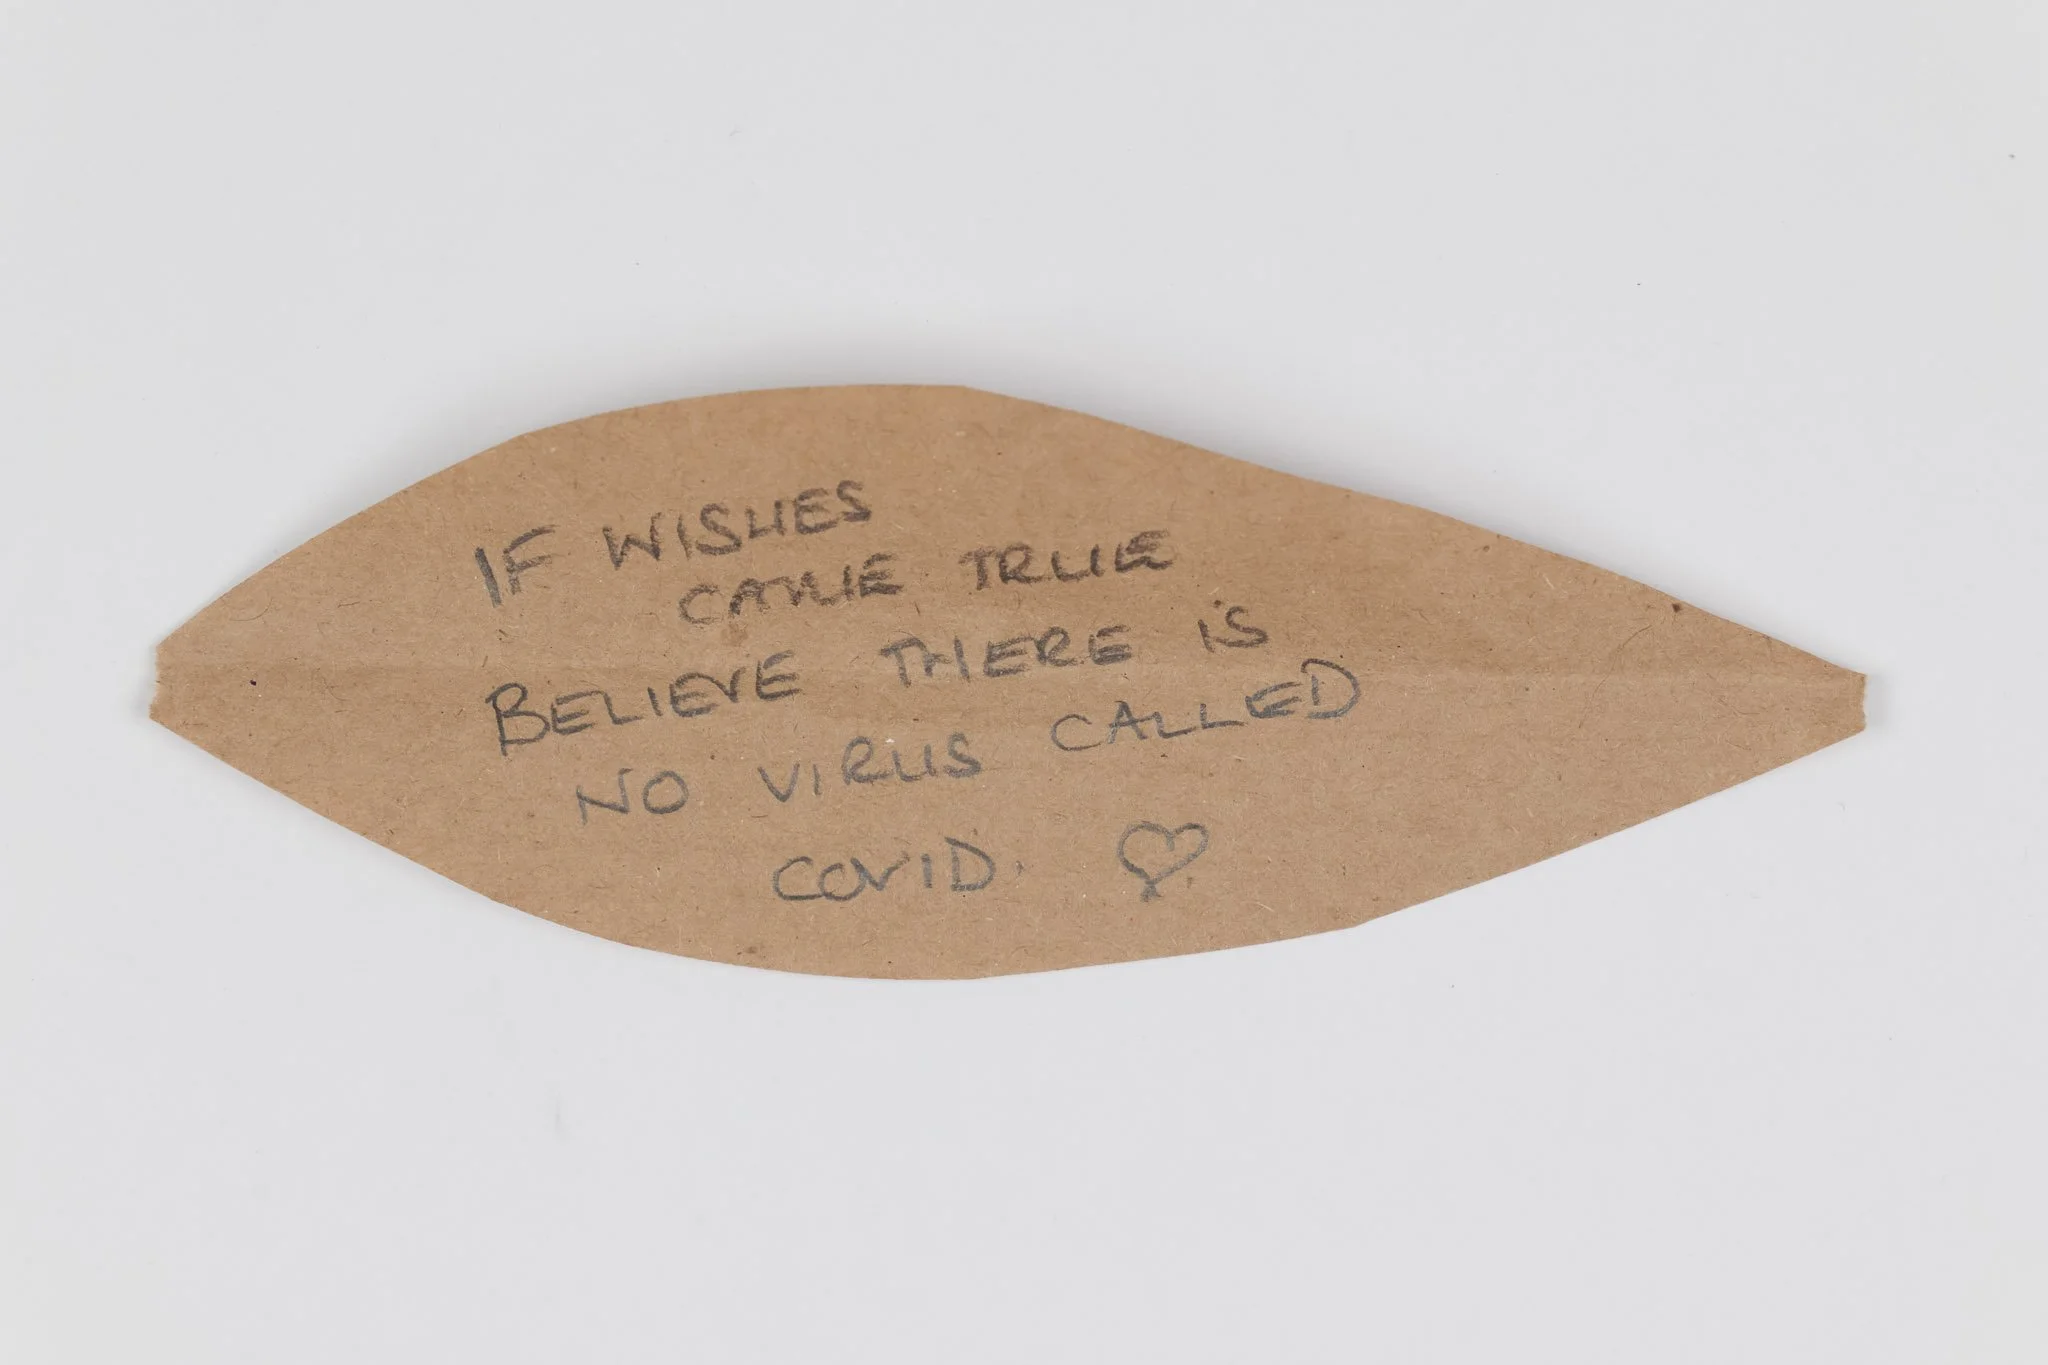 IF WISHES
CAME TRUE
BELIEVE THERE IS
NO VIRUS CALLED
COVID.